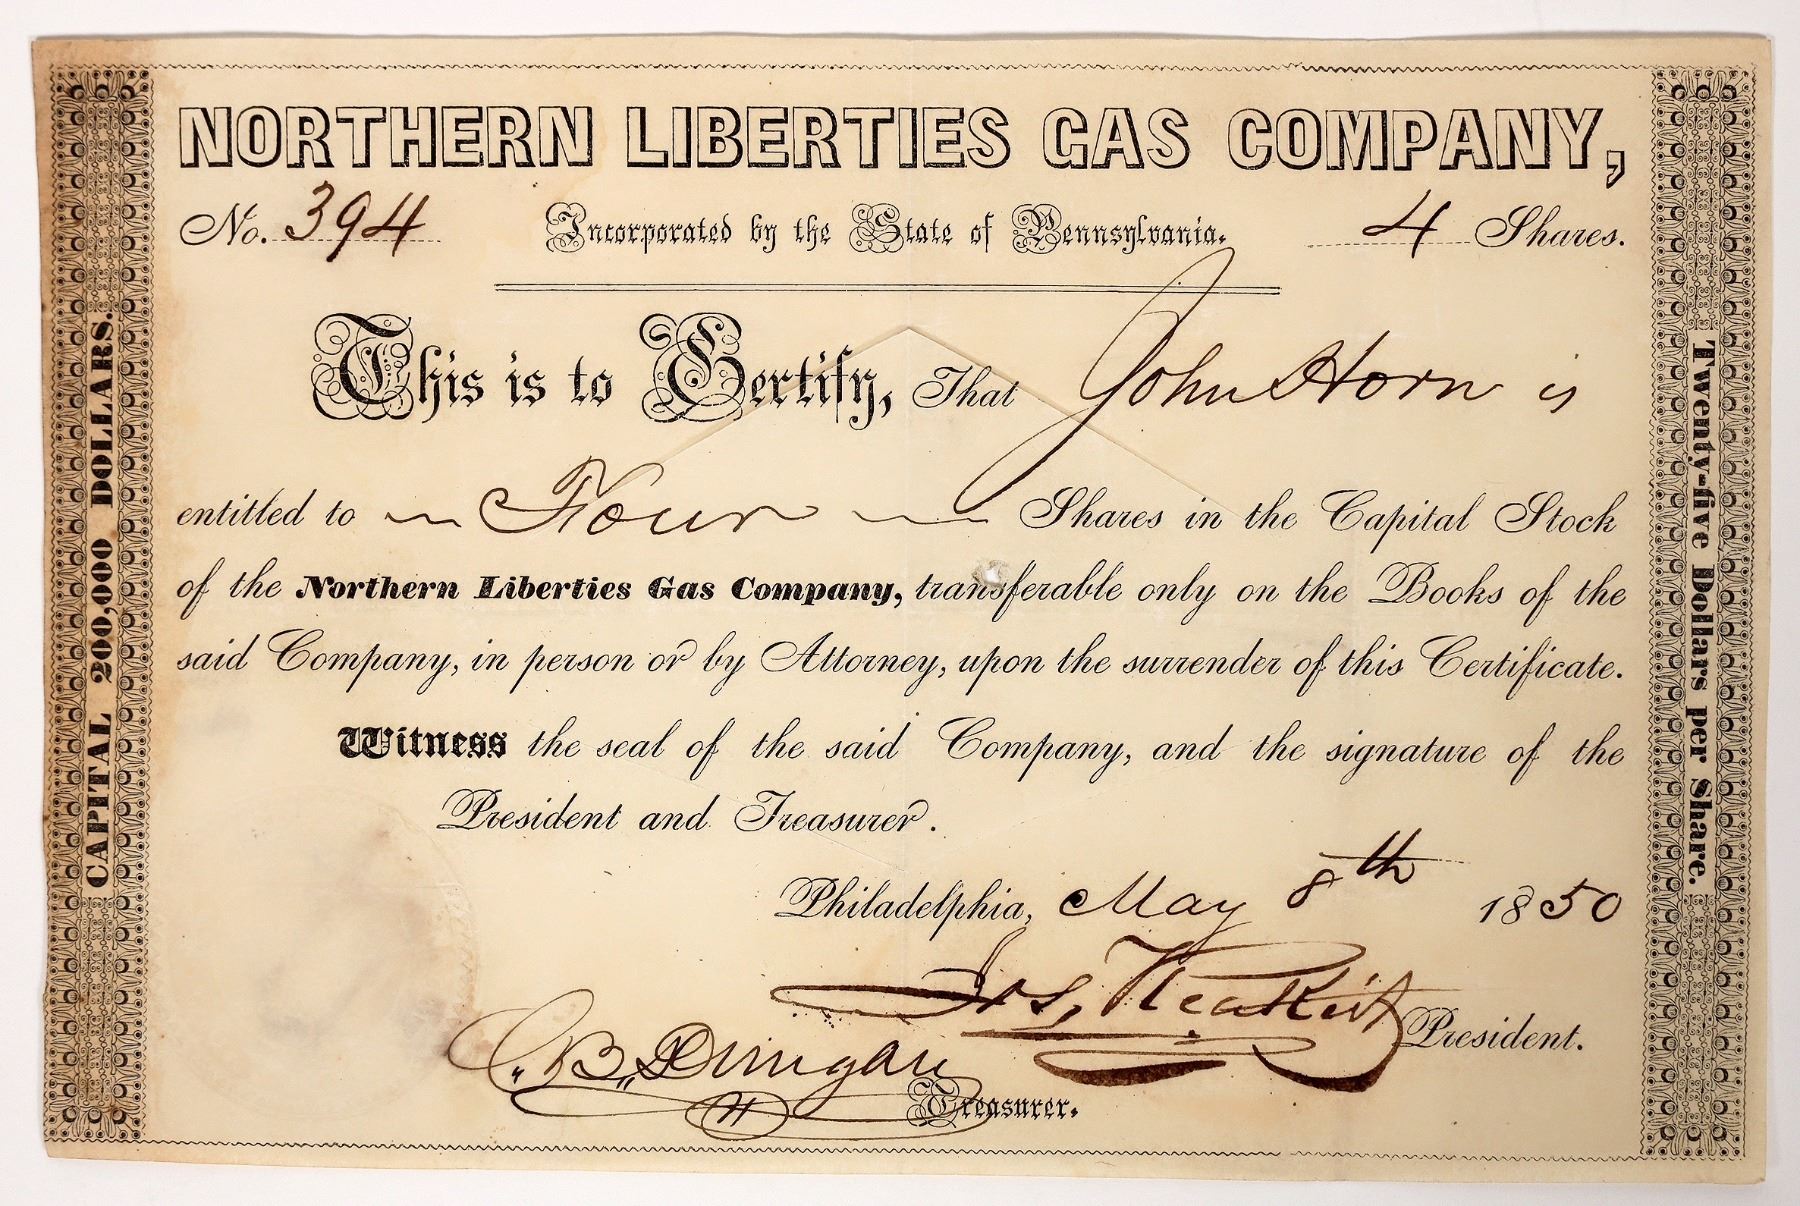 NORTHERN LIBERTIES GAS COMPANY,
No. 394 Incorporated by the State of Pennsylvania. 4 Shares.
This is to Certify, That John Horn is
entitled to Four Shares in the Capital Stock
of the Northern Liberties Gas Company, transferable only on the Books of the
said Company, in person or by Attorney, upon the surrender of this Certificate.
Witness the seal of the said Company, and the signature of the
President and Treasurer.
Philadelphia, May 8th 1850
President.
Treasurer.
CAPITAL 200,000 DOLLARS.
Twenty-five Dollars per Share.